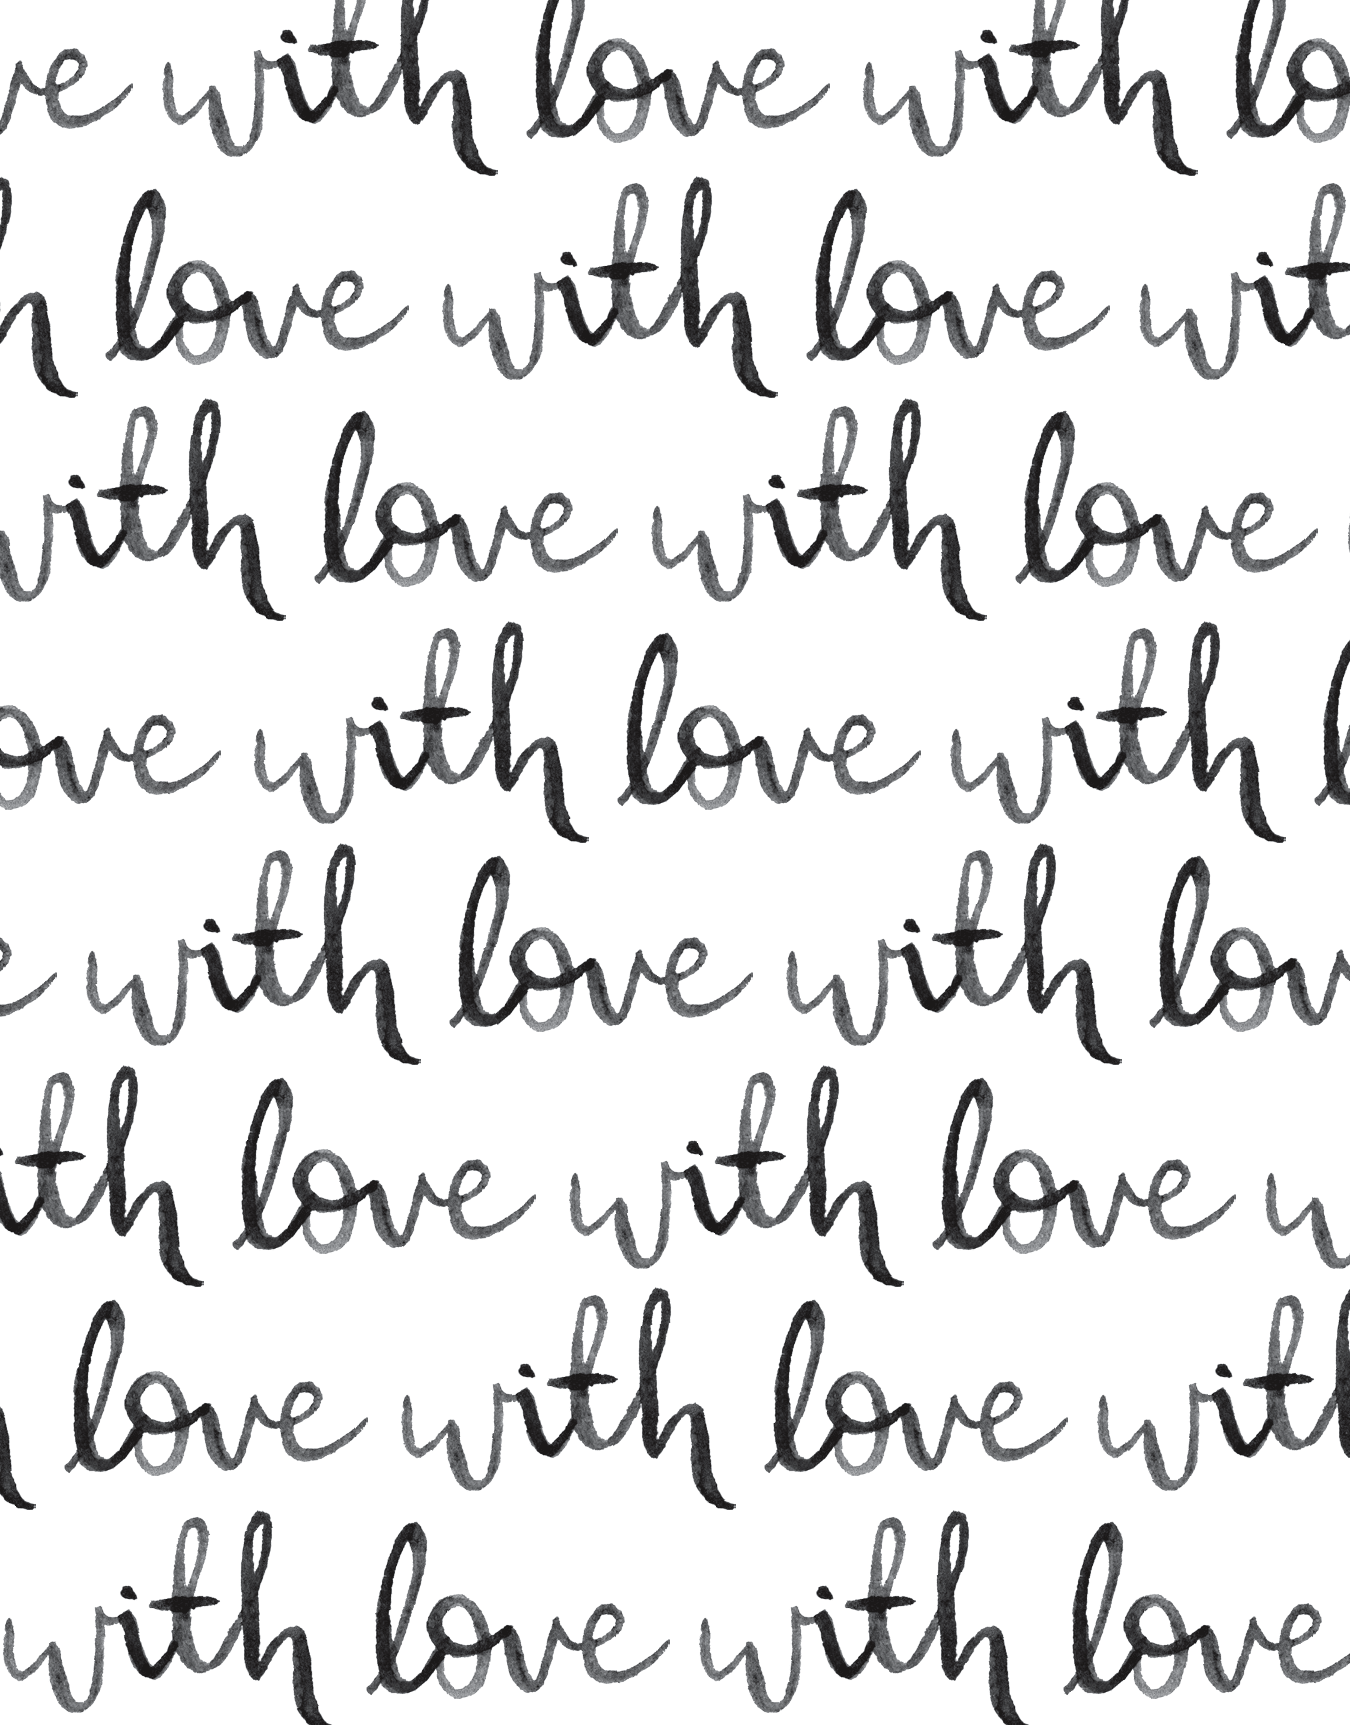 ve with love with lo
h love with love wit
with love with love
ove with love with l
e with love with lov
ith love with love w
love with love with
with love with love